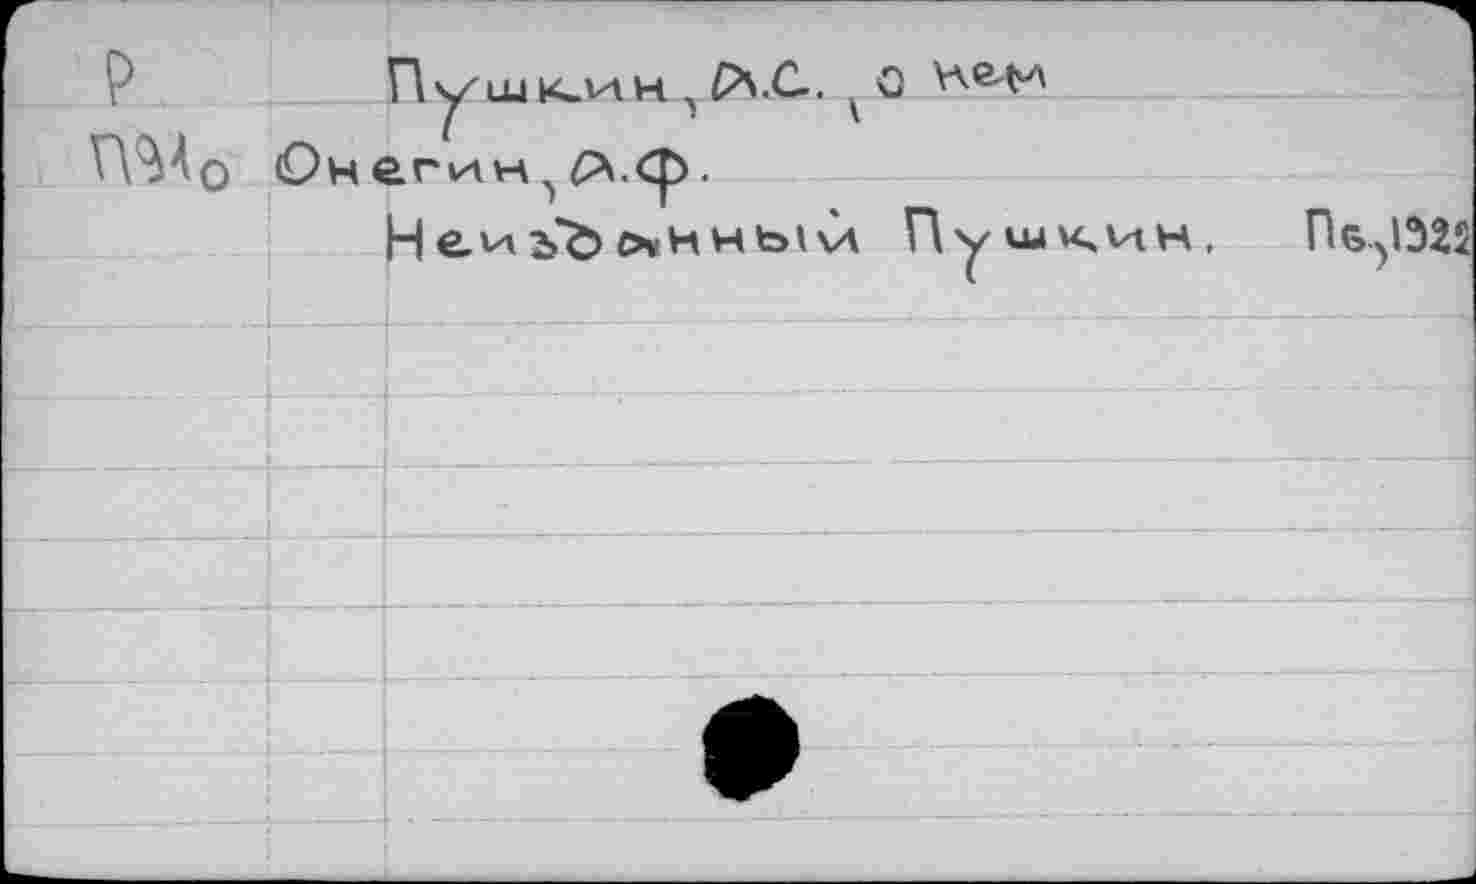 Р Пушкин, А.С., о нем
Онегин, А.Ф.
Неизданный Пушкин. Пб., 1922